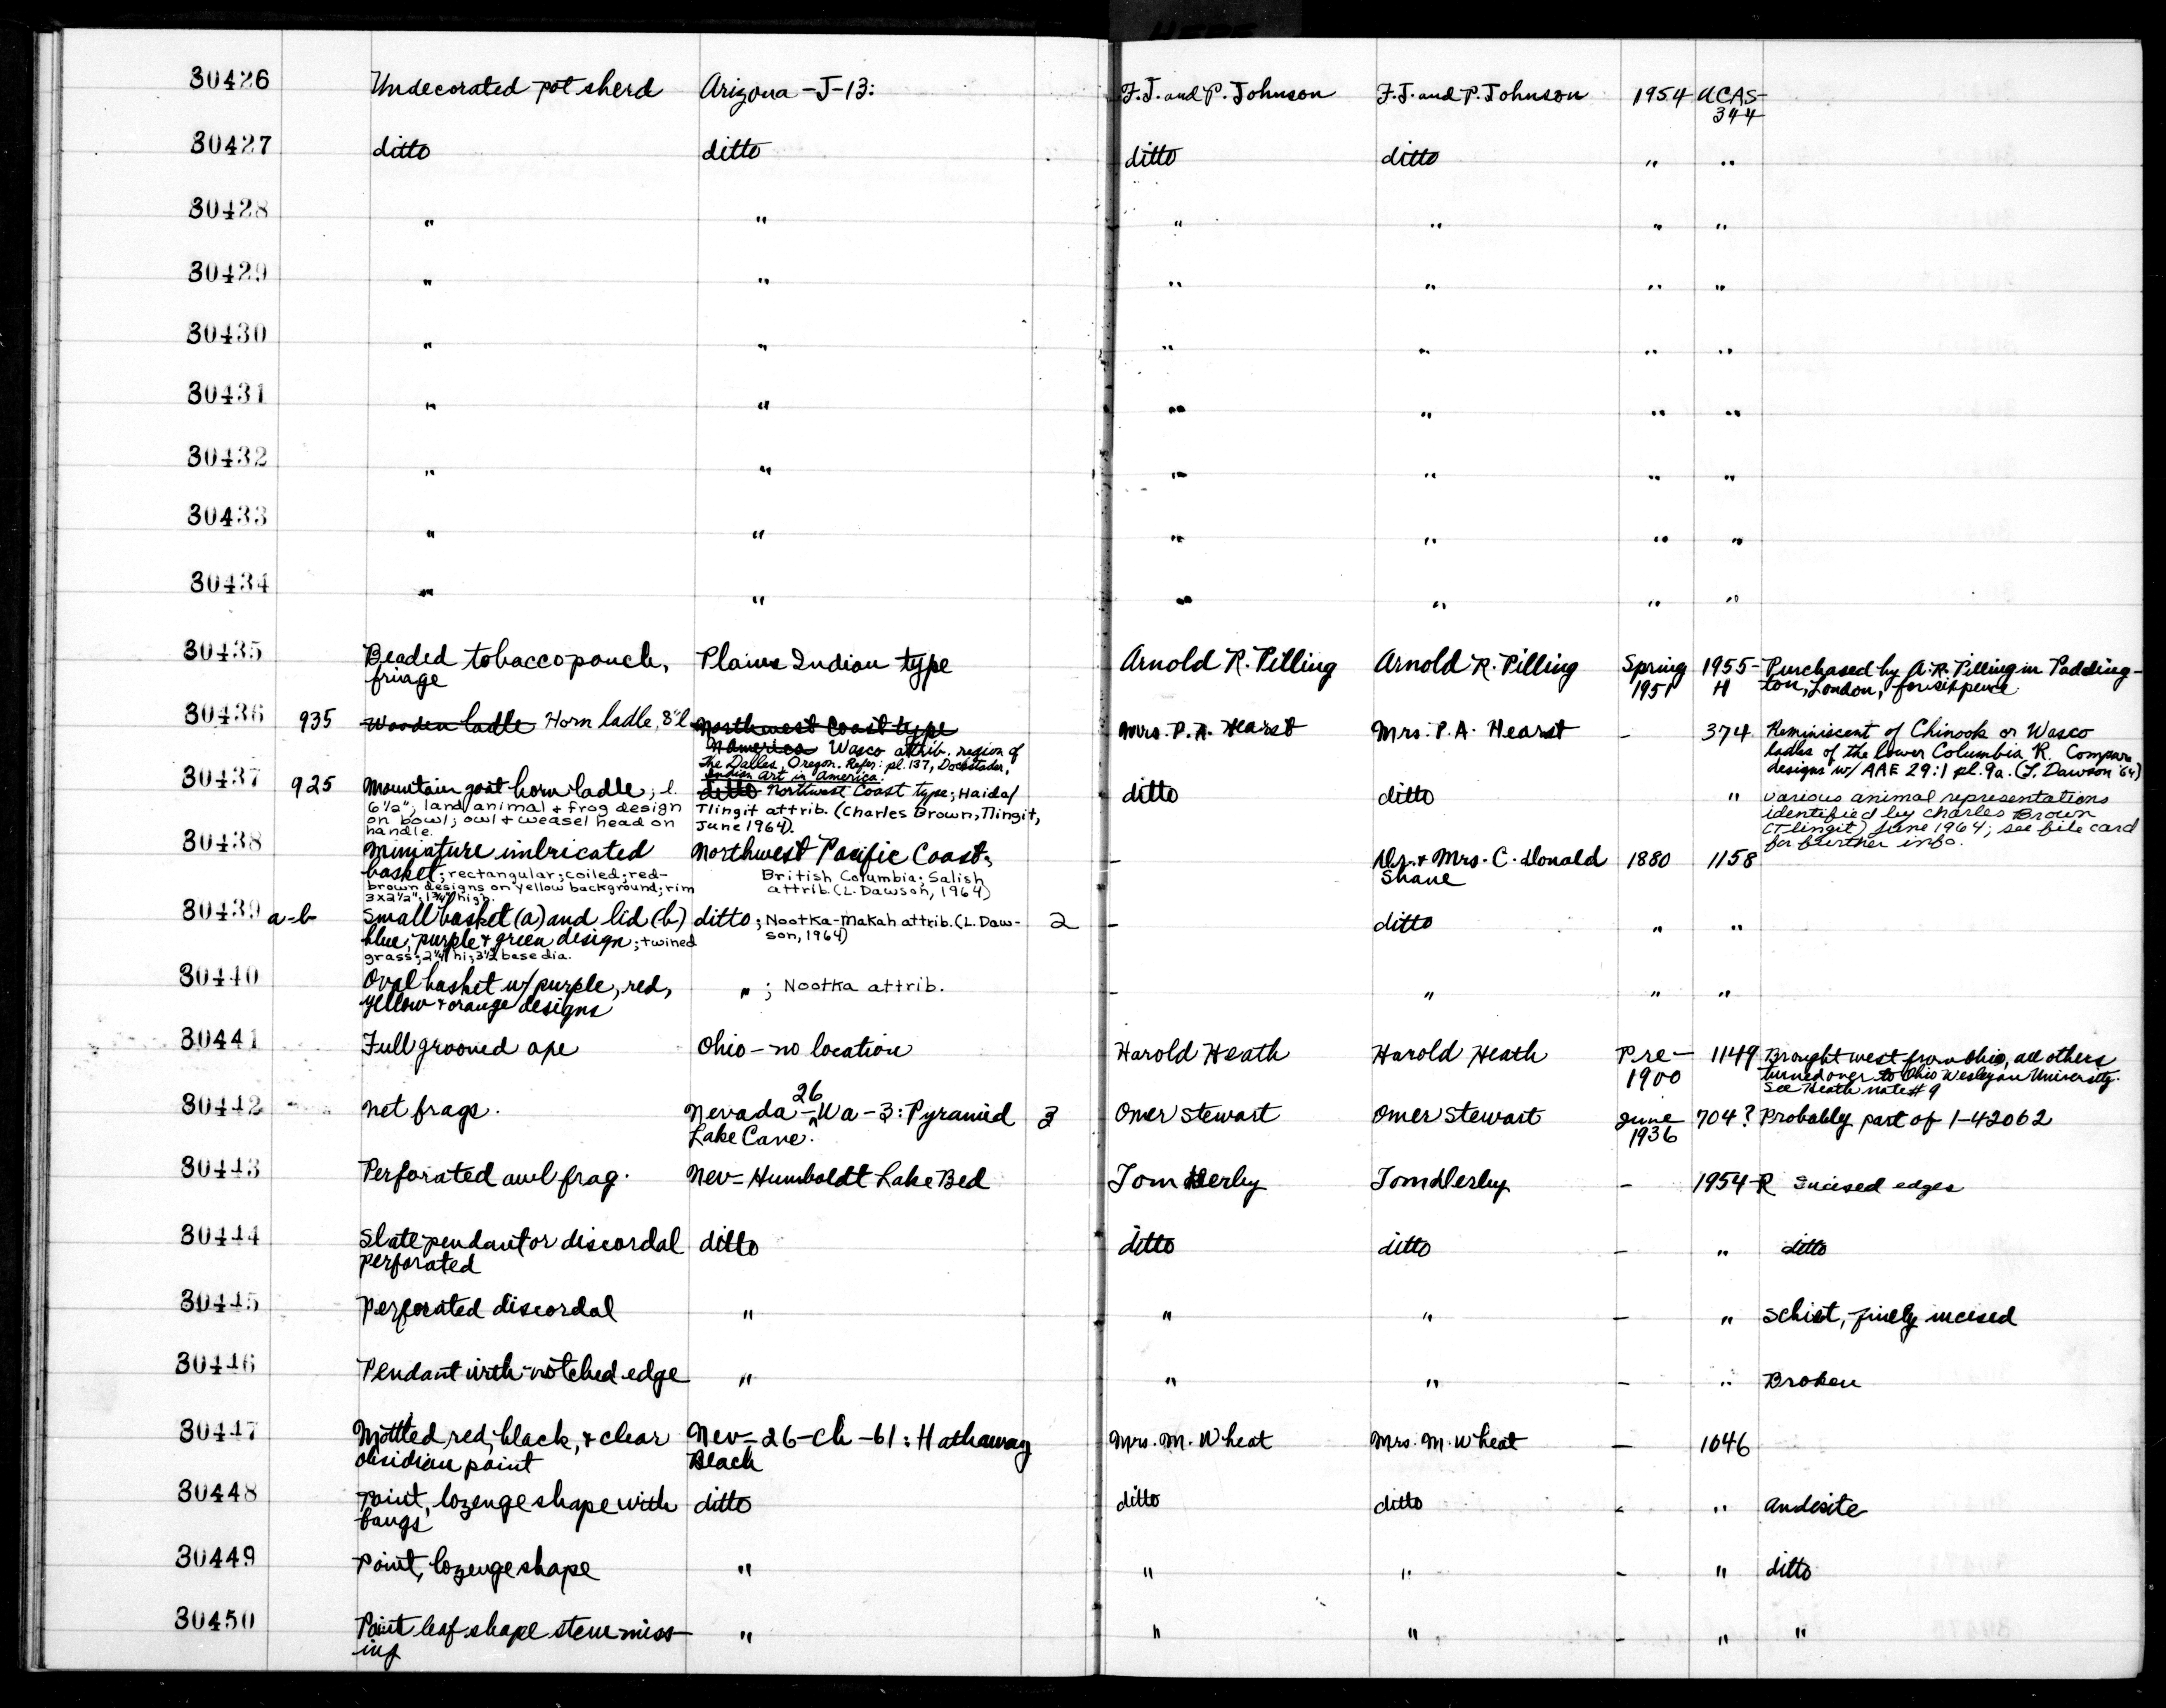 30426 Undecorated pot sherd Arizona - J-13: F.J. and P. Johnson F.J. and P. Johnson 1954 UCAS-
344
30427 ditto ditto ditto ditto " "
30428 " " " " " "
30429 " " " " " "
30430 " " " " " "
30431 " " " " " "
30432 " " " " " "
30433 " " " " " "
30434 " " " " " "
30435 Beaded tobacco pouch, Plains Indian type Arnold R. Pilling Arnold R. Pilling Spring 1955- Purchased by A.R. Pilling in Padding-
fringe 1951 H ton, London, for sixpence
30436 935 Wooden ladle Horn ladle, 8" l Northwest Coast type Mrs. P.A. Hearst Mrs. P.A. Hearst - 374 Reminiscent of Chinook or Wasco
N America Wasco attrib. region of ladles of the lower Columbia R. Compare
The Dalles, Oregon. Refer: pl. 137, Dockstader, designs w/ AAE 29:1 pl. 9a. (L. Dawson '64)
Indian Art in America.
30437 925 Mountain goat horn ladle; l. ditto Northwest Coast type; Haida/ ditto ditto " Various animal representations
6½"; land animal + frog design Tlingit attrib. (Charles Brown, Tlingit, identified by Charles Brown
on bowl; owl + weasel head on June 1964). (Tlingit) June 1964; see file card
handle. for further info.
30438 Miniature imbricated Northwest Pacific Coast; - Dr. + Mrs. C. Donald 1880 1158
basket; rectangular; coiled; red- British Columbia; Salish Shane
brown designs on yellow background; rim attrib. (L. Dawson, 1964)
3x2½"; 1¾" high.
30439 a-b Small basket (a) and lid (b) ditto; Nootka-Makah attrib. (L. Daw- 2 - ditto " "
blue, purple + green design; twined son, 1964)
grass; 2¼" hi; 3½ base dia.
30440 Oval basket w/ purple, red, " ; Nootka attrib. - " " "
yellow + orange designs
30441 Full grooved axe Ohio - no location Harold Heath Harold Heath Pre- 1149 Brought west from Ohio, all others
1900 turned over to Ohio Wesleyan University.
See Heath note # 9
30442 Net frags. Nevada - 26 Wa - 3: Pyramid 3 Omer Stewart Omer Stewart June 704? Probably part of 1-42062
Lake Cave. 1936
30443 Perforated awl frag. Nev - Humboldt Lake Bed Tom Derby Tom Derby - 1954-R Incised edges
30444 Slate pendant or discordal ditto ditto ditto - " ditto
perforated
30445 Perforated discordal " " " - " Schist, finely incised
30446 Pendant with notched edge " " " - " Broken
30447 Mottled red, black, + clear Nev - 26 - Ch - 61: Hathaway Mrs. M. Wheat Mrs. M. Wheat - 1046
obsidian point Beach
30448 Point, lozenge shape with ditto ditto ditto - " Andesite
tangs
30449 Point, lozenge shape " " " - " ditto
30450 Point leaf shape stem miss- " " " - " "
ing